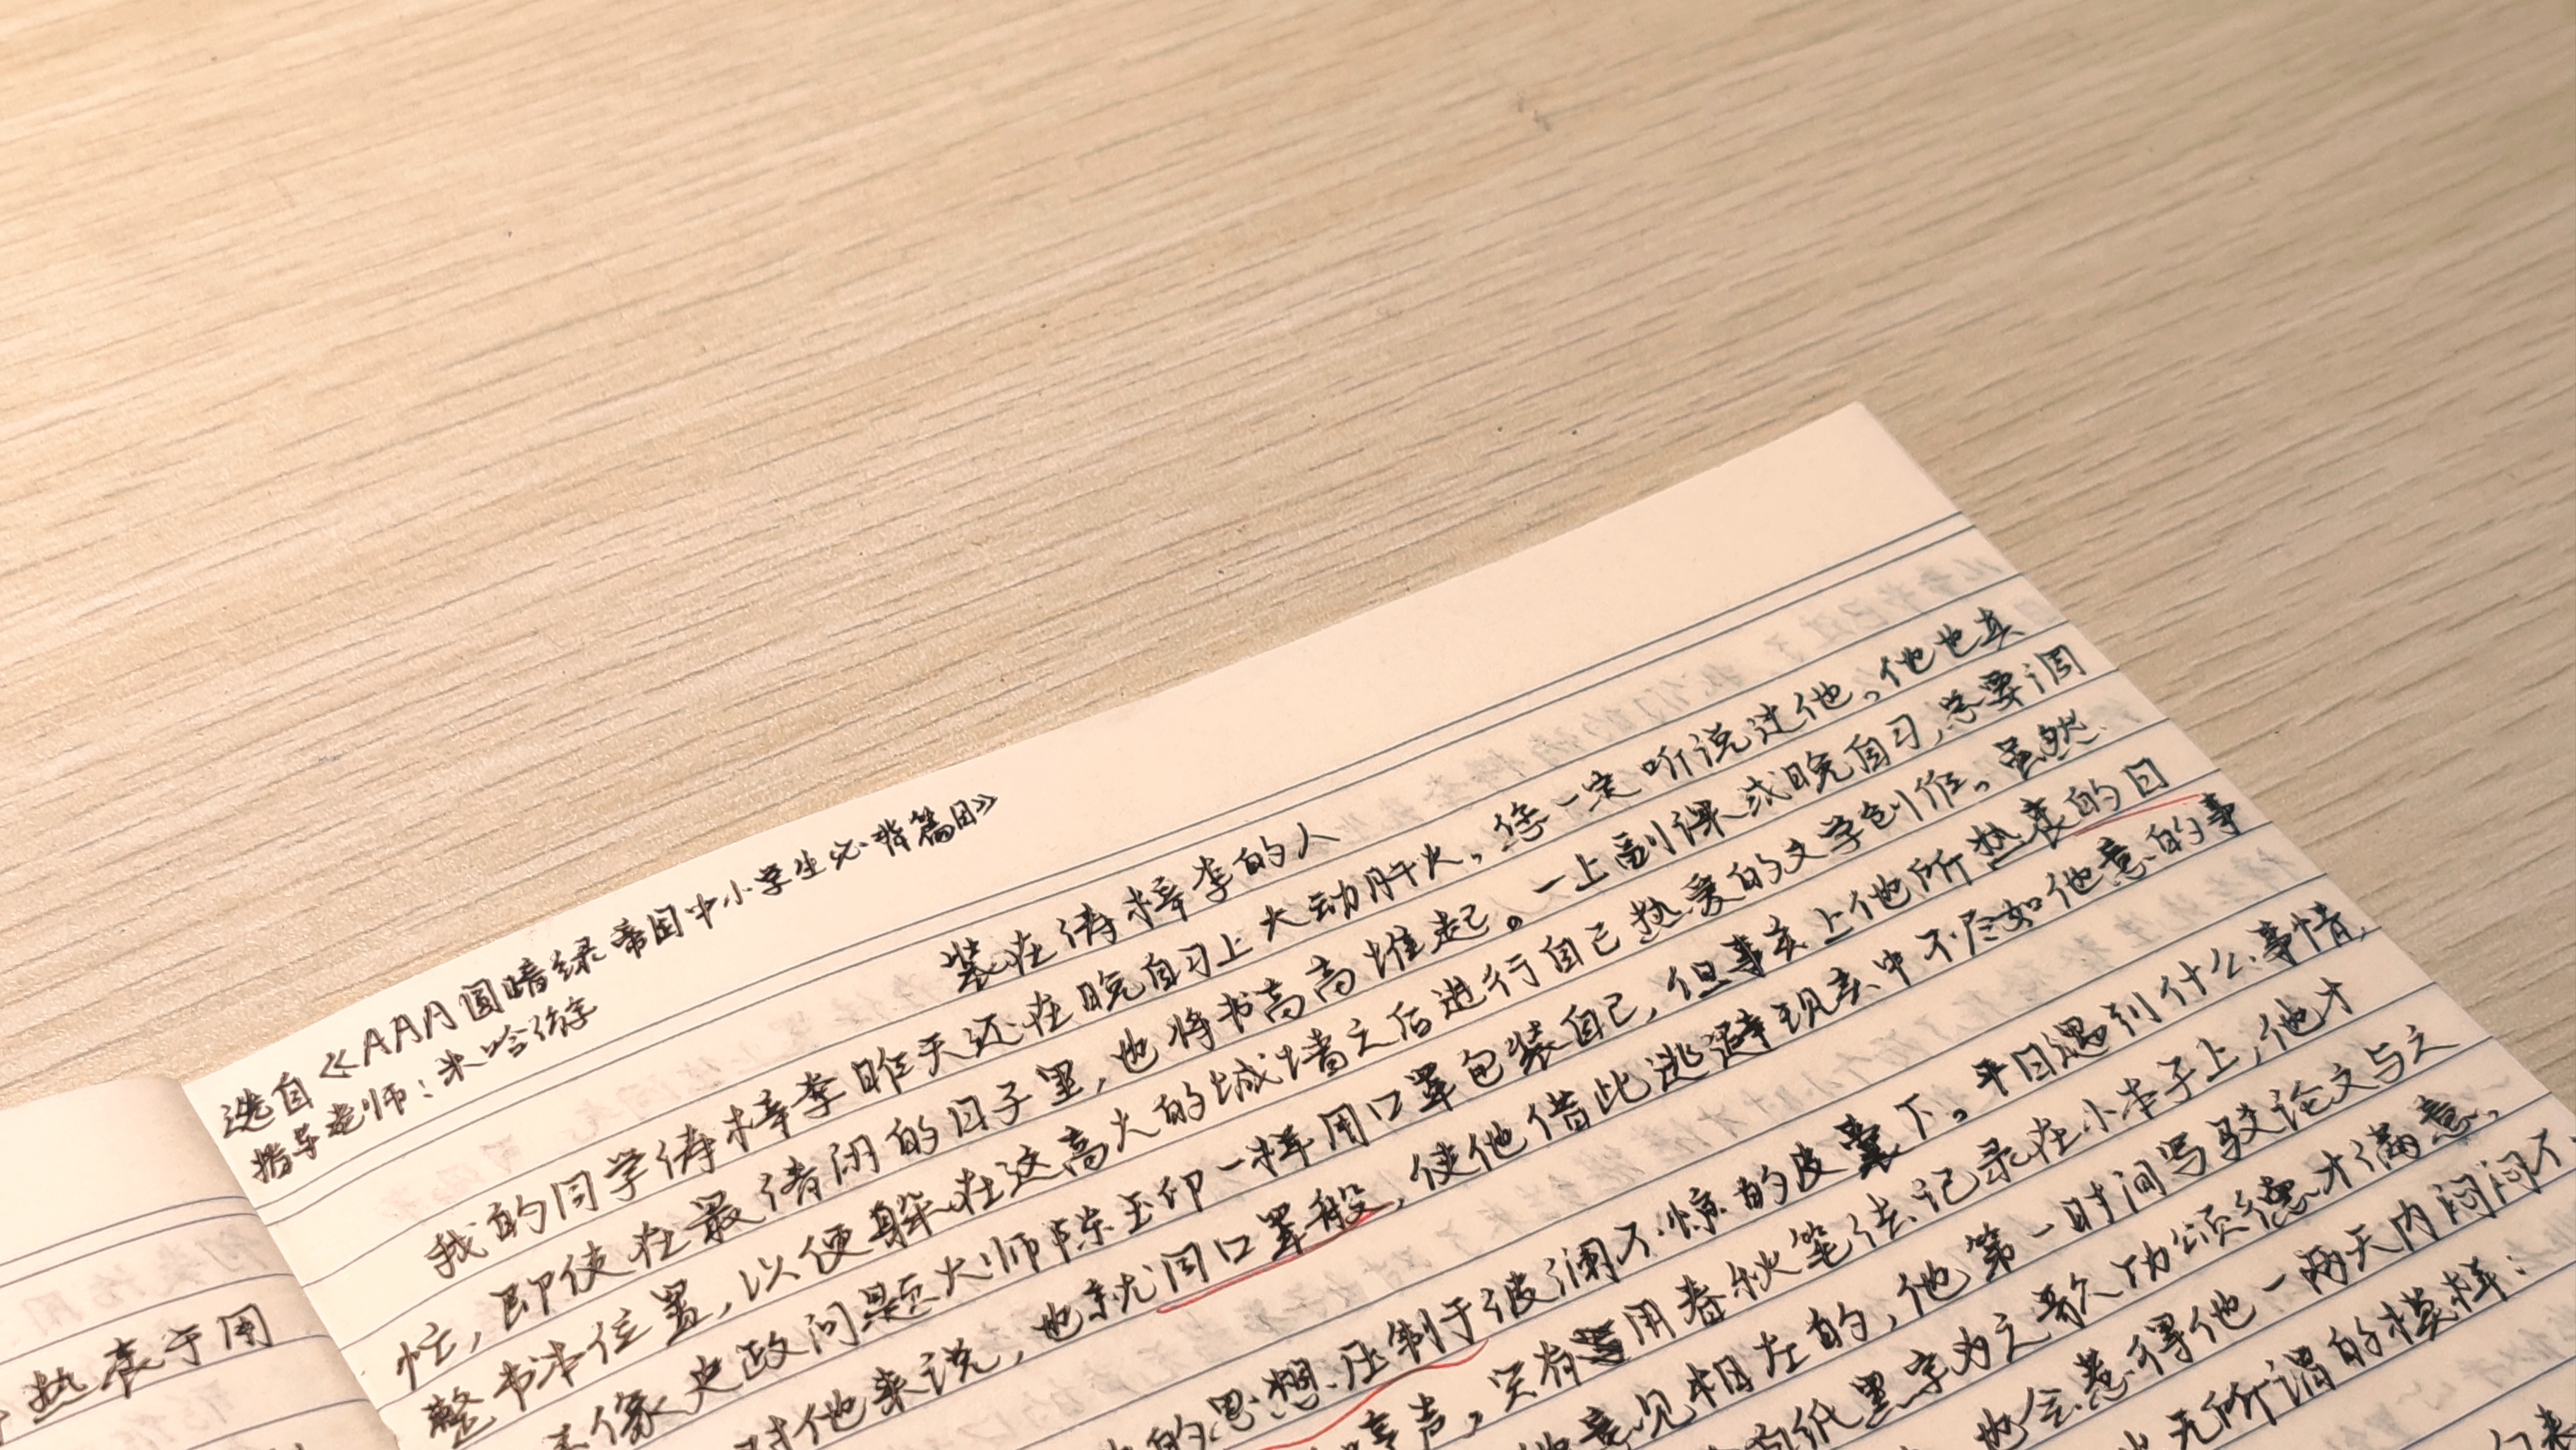 选自《AAA圆暗绿帝国中小学生必背篇目》
指导老师：米哈
装在涛梓李的人
我的同学涛梓李昨天还在晚自习上大动肝火，您一定听说过他。他也真
忙，即使在最清闲的日子里，也将书高高堆起。一上副课或晚自习，总要调
整书本位置，以便躲在这高大的城墙之后进行自己热爱的文学创作。虽然
像史政问题大师陈玉印一样用口罩包装自己，但事实上他所热衷的日
对他来说，也就同口罩般，使他借此逃避现实中不尽如他意的事
的思想压制于波澜不惊的皮囊下。平日遇到什么事情，
声，只有用春秋笔法记录在小本子上，他才
意见相左的，他第一时间写驳论文与之
纸黑字为之歌功颂德才满意，
也会惹得他一两天内闷闷不
无所谓的模样：
热衷于用